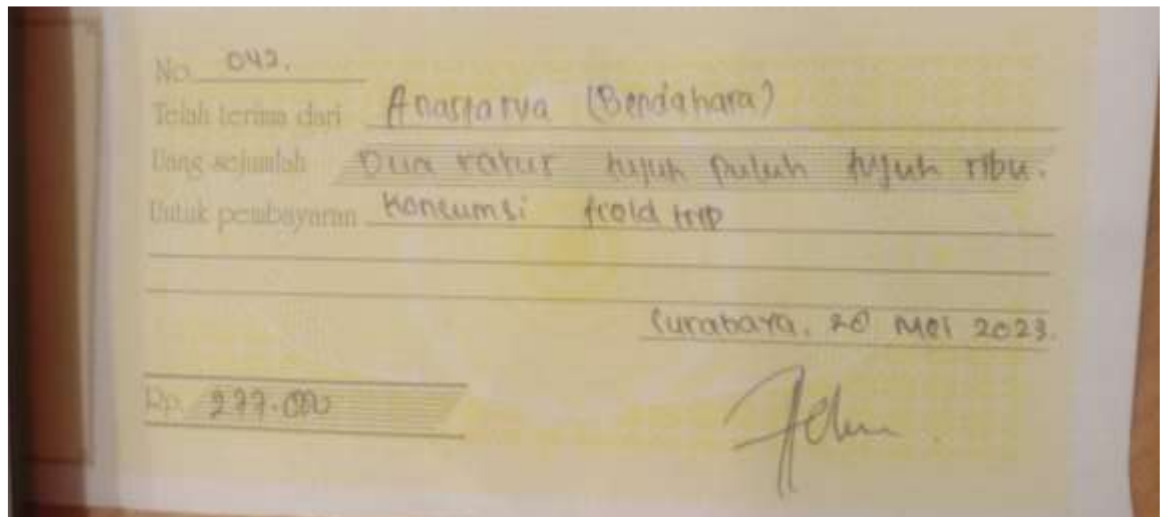 No. 042.
Telah terima dari Anastasya (Bendahara)
Uang sejumlah Dua ratus tujuh puluh tujuh ribu.
Untuk pembayaran Konsumsi field trip
Surabaya, 20 Mei 2023.
Rp. 277.000